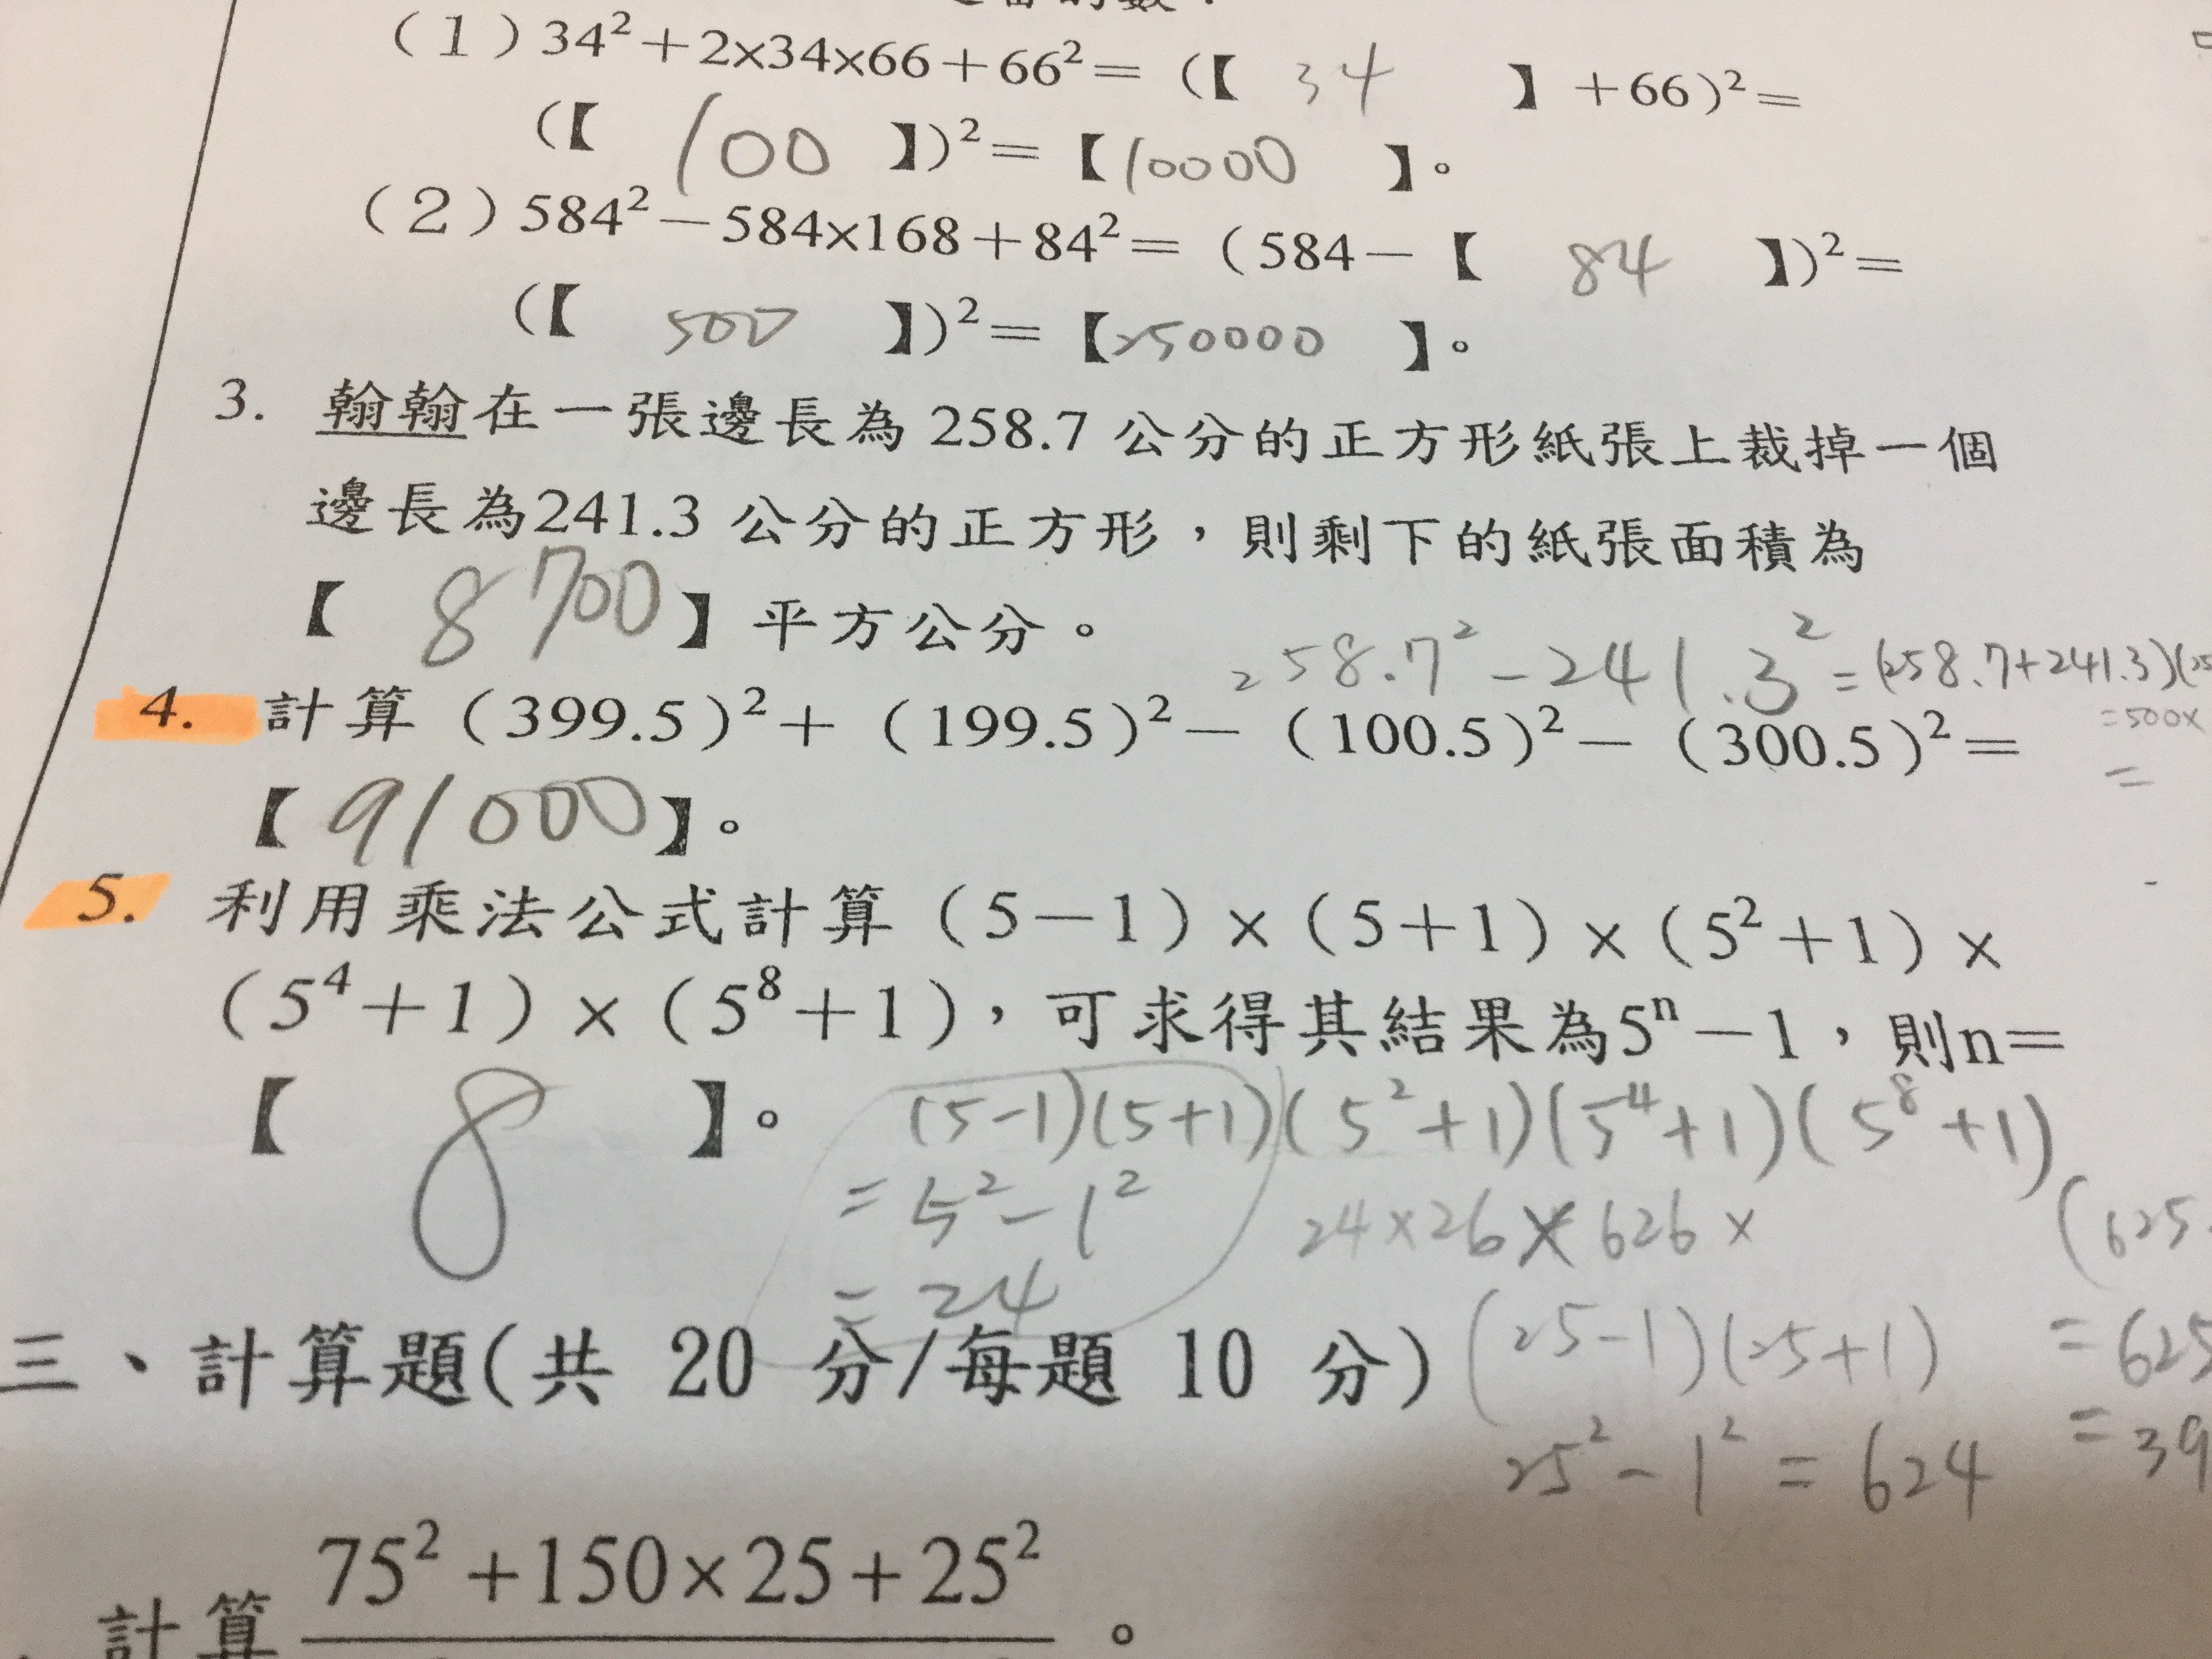 (1) 34²+2×34×66+66²= (【 34 】+66)²=
(【 100 】)²=【10000 】。
(2) 584²-584×168+84²= (584-【 84 】)²=
(【 500 】)²=【250000 】。
3. 翰翰在一張邊長為 258.7 公分的正方形紙張上裁掉一個
邊長為241.3 公分的正方形,則剩下的紙張面積為
【 8700】平方公分。
258.7²-241.3²=(258.7+241.3)(
=500×
=
4. 計算 (399.5)²+ (199.5)²- (100.5)²- (300.5)²=
【 91000】。
5. 利用乘法公式計算 (5-1) × (5+1) × (5²+1) ×
(5⁴+1) × (5⁸+1),可求得其結果為5ⁿ-1,則n=
【 8 】。
(5-1)(5+1)(5²+1)(5⁴+1)(5⁸+1)
=5²-1²
=24
24×26×626×
(25-1)(25+1)
25²-1²=624
(625
=625
=39
三、計算題(共 20 分/每題 10 分)
計算 75²+150×25+25² 。